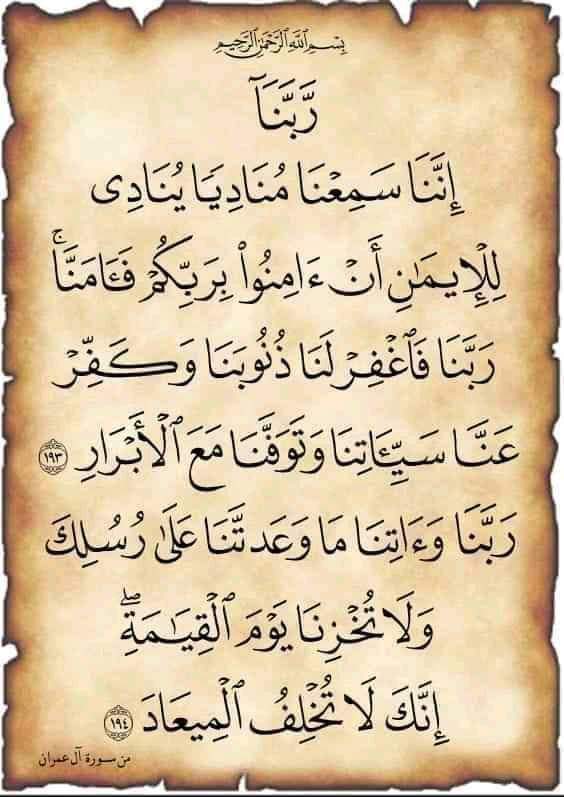 بِسْمِ ٱللَّهِ ٱلرَّحْمَٰنِ ٱلرَّحِيمِ
رَّبَّنَآ
إِنَّنَا سَمِعْنَا مُنَادِيًا يُنَادِى
لِلْإِيمَٰنِ أَنْ ءَامِنُوا۟ بِرَبِّكُمْ فَـَٔامَنَّا ۚ
رَبَّنَا فَٱغْفِرْ لَنَا ذُنُوبَنَا وَكَفِّرْ
عَنَّا سَيِّـَٔاتِنَا وَتَوَفَّنَا مَعَ ٱلْأَبْرَارِ ١٩٣
رَبَّنَا وَءَاتِنَا مَا وَعَدتَّنَا عَلَىٰ رُسُلِكَ
وَلَا تُخْزِنَا يَوْمَ ٱلْقِيَٰمَةِ ۖ
إِنَّكَ لَا تُخْلِفُ ٱلْمِيعَادَ ١٩٤
من سورة آل عمران